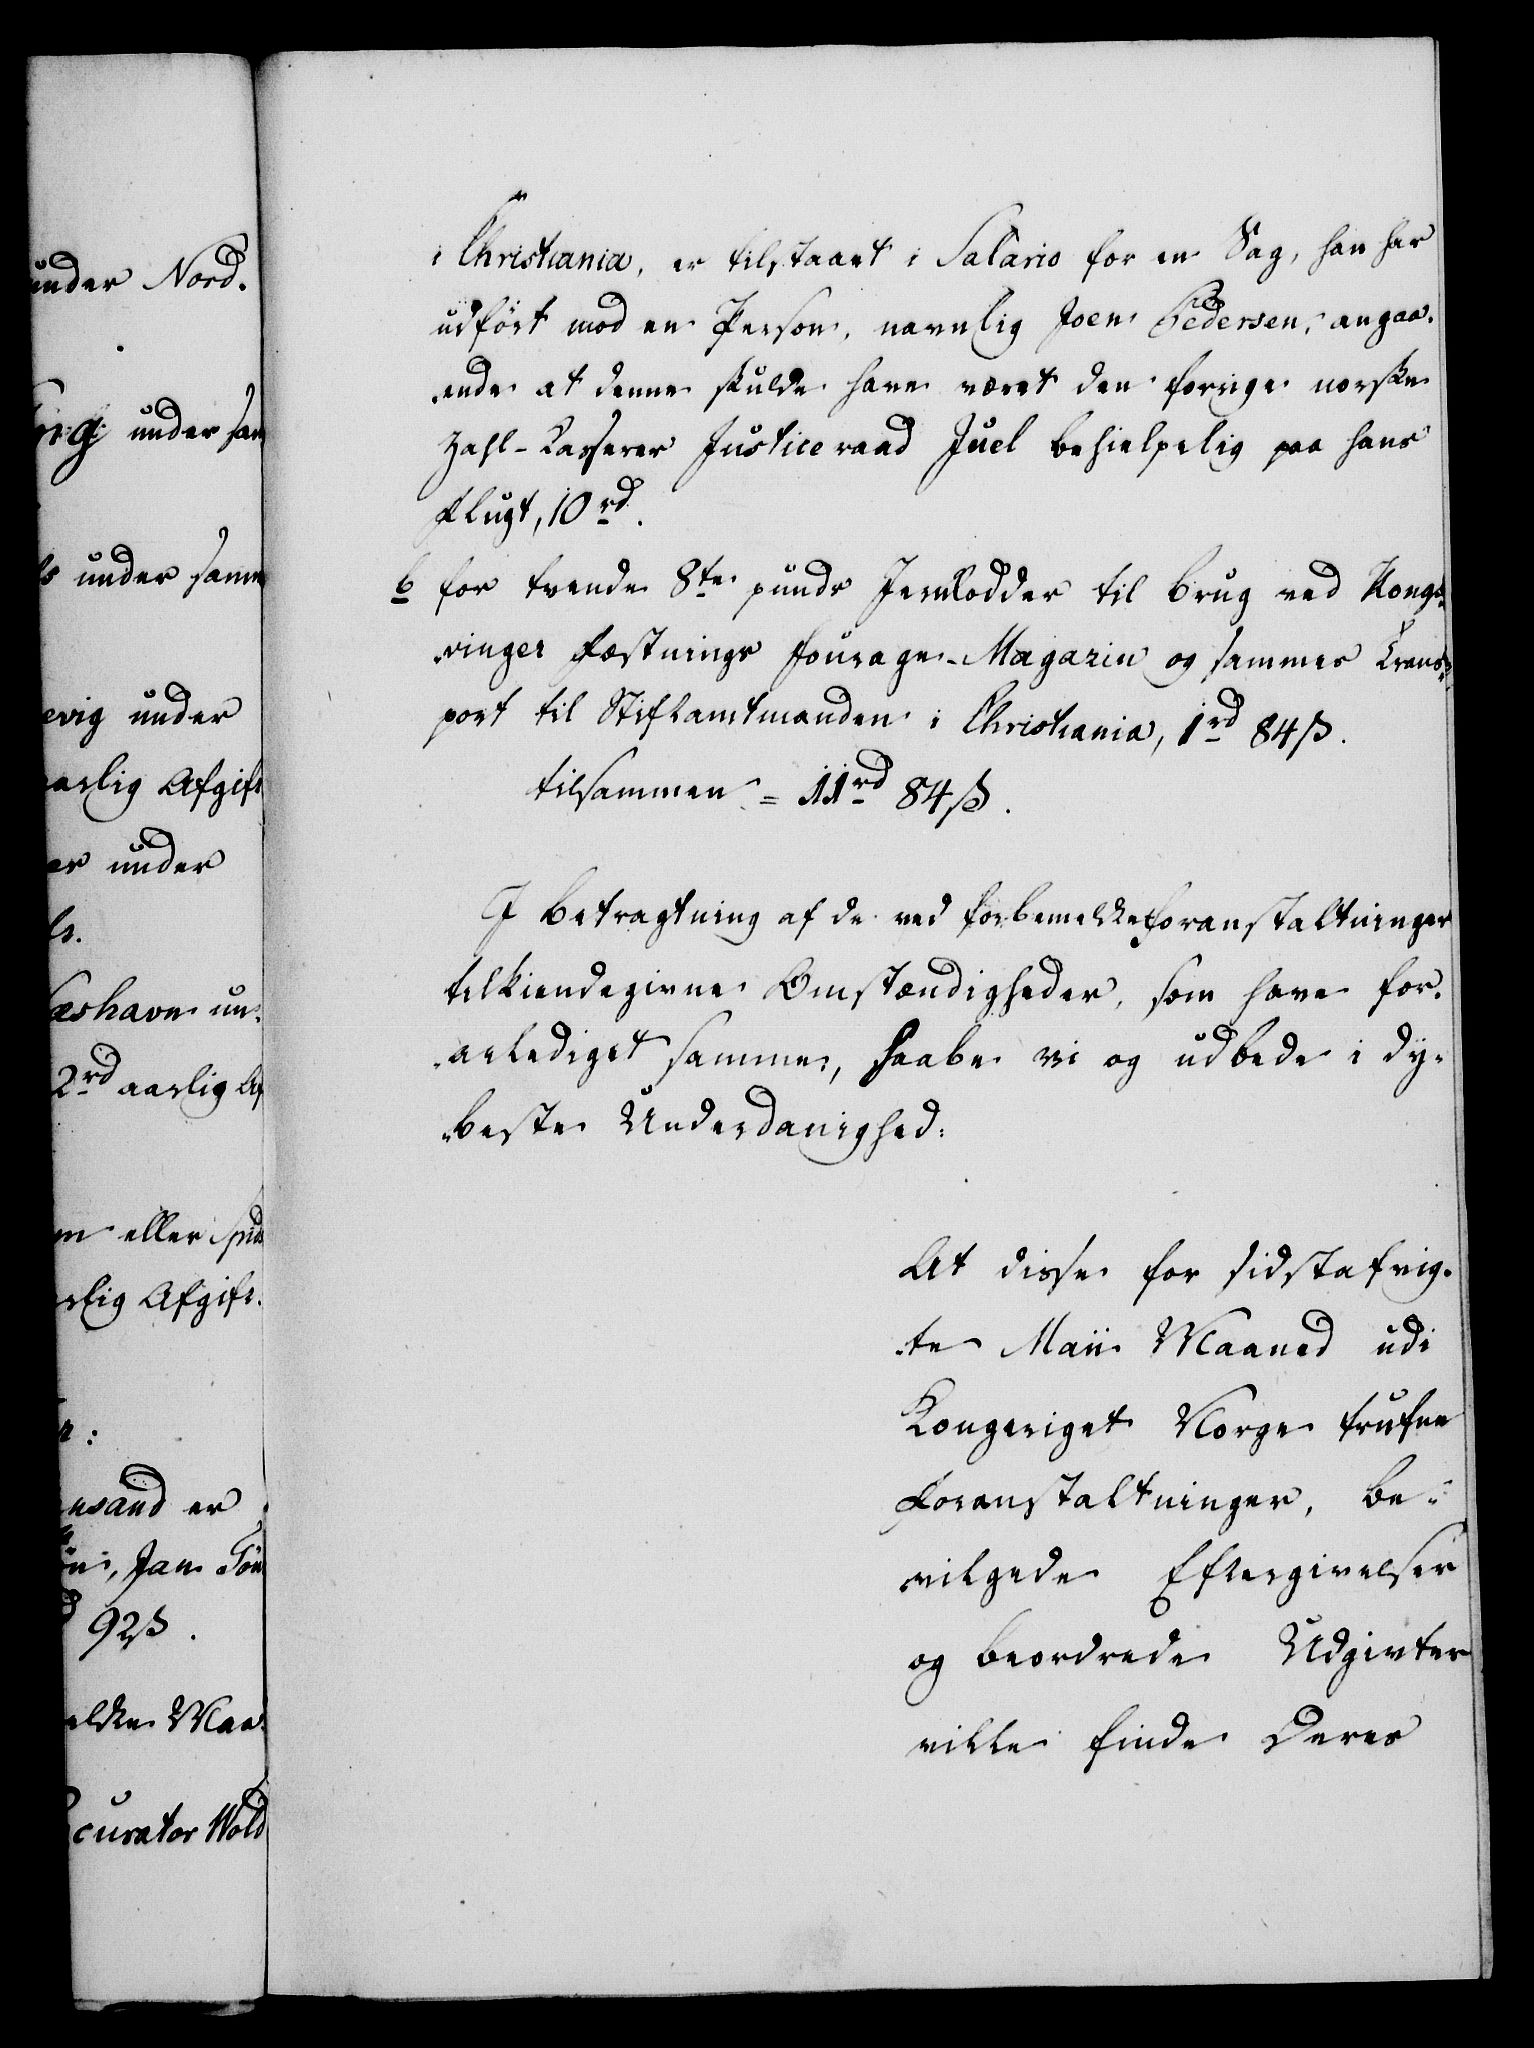 under Nord.
ng under sam
s under samm
evig under
aarlig Afgift
er under
s.
æshavn un-
2rd aarlig Af
m eller
rlig Afgift.
r:
nsand er
n, Jan Tön
92ß.
eldte Maa-
curator Wold
i Christiania, er tilstaaet i Salario for en Sag, han har
udført mod en Person, navnlig Joen Pedersen, angaa-
ende at denne skulde have været den forrige norske
Zahl-Casserer Justiceraad Juel behielpelig paa hans
Flugt, 10 rd.
b for tvende 8te punds Jernlodder til brug ved Kongs-
vinger Fæstnings Fourage-Magazin og sammes Trans-
port til Stiftamtmanden i Christiania, 1 rd 84 ß.
tilsammen = 11 rd 84 ß.
I betragtning af de ved forbemeldte Foranstaltninger
tilkiendegivne Omstændigheder, som have for-
anlediget samme, haabe vi og udbede i dy-
beste Underdanighed:
At disse for sidstafvig-
te Maii Maaned udi
Kongeriget Norge trufne
Foranstaltninger, be-
vilgede Eftergivelser
og beordrede Udgivter
ville finde Deres